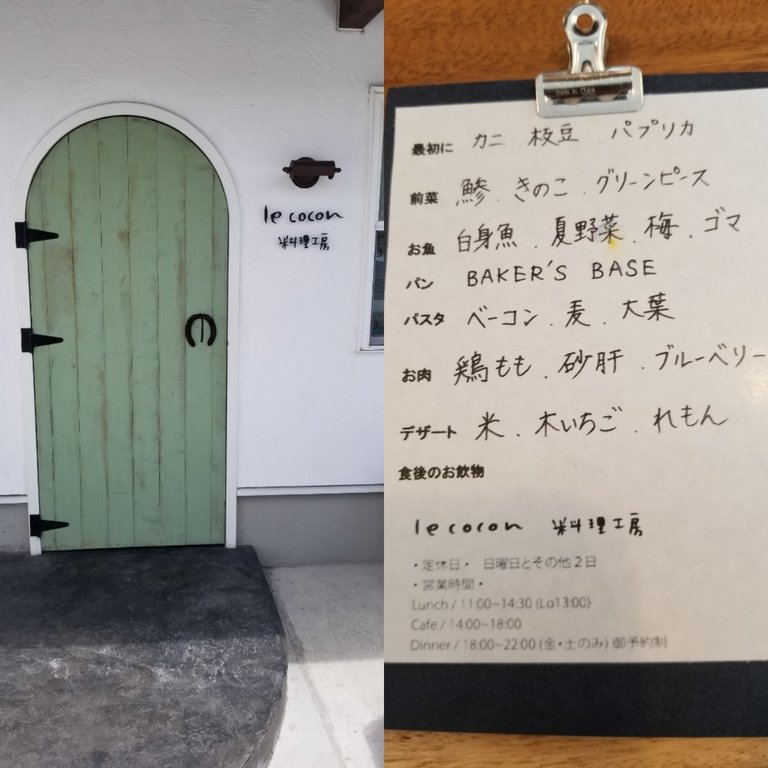 le cocon
料理工房
Made in China
最初に カニ 枝豆 . パプリカ
前菜 鯵 . きのこ . グリーンピース
お魚 白身魚 . 夏野菜 . 梅 . ゴマ
パン BAKER'S BASE
パスタ ベーコン . 麦 . 大葉
お肉 鶏もも . 砂肝 . ブルーベリー
デザート 米 . 木いちご . れもん
食後のお飲物
le cocon 料理工房
・定休日・ 日曜日とその他2日
・営業時間・
Lunch / 11:00~14:30 (Lo13:00)
Cafe / 14:00~18:00
Dinner / 18:00~22:00 (金・土のみ) 御予約制